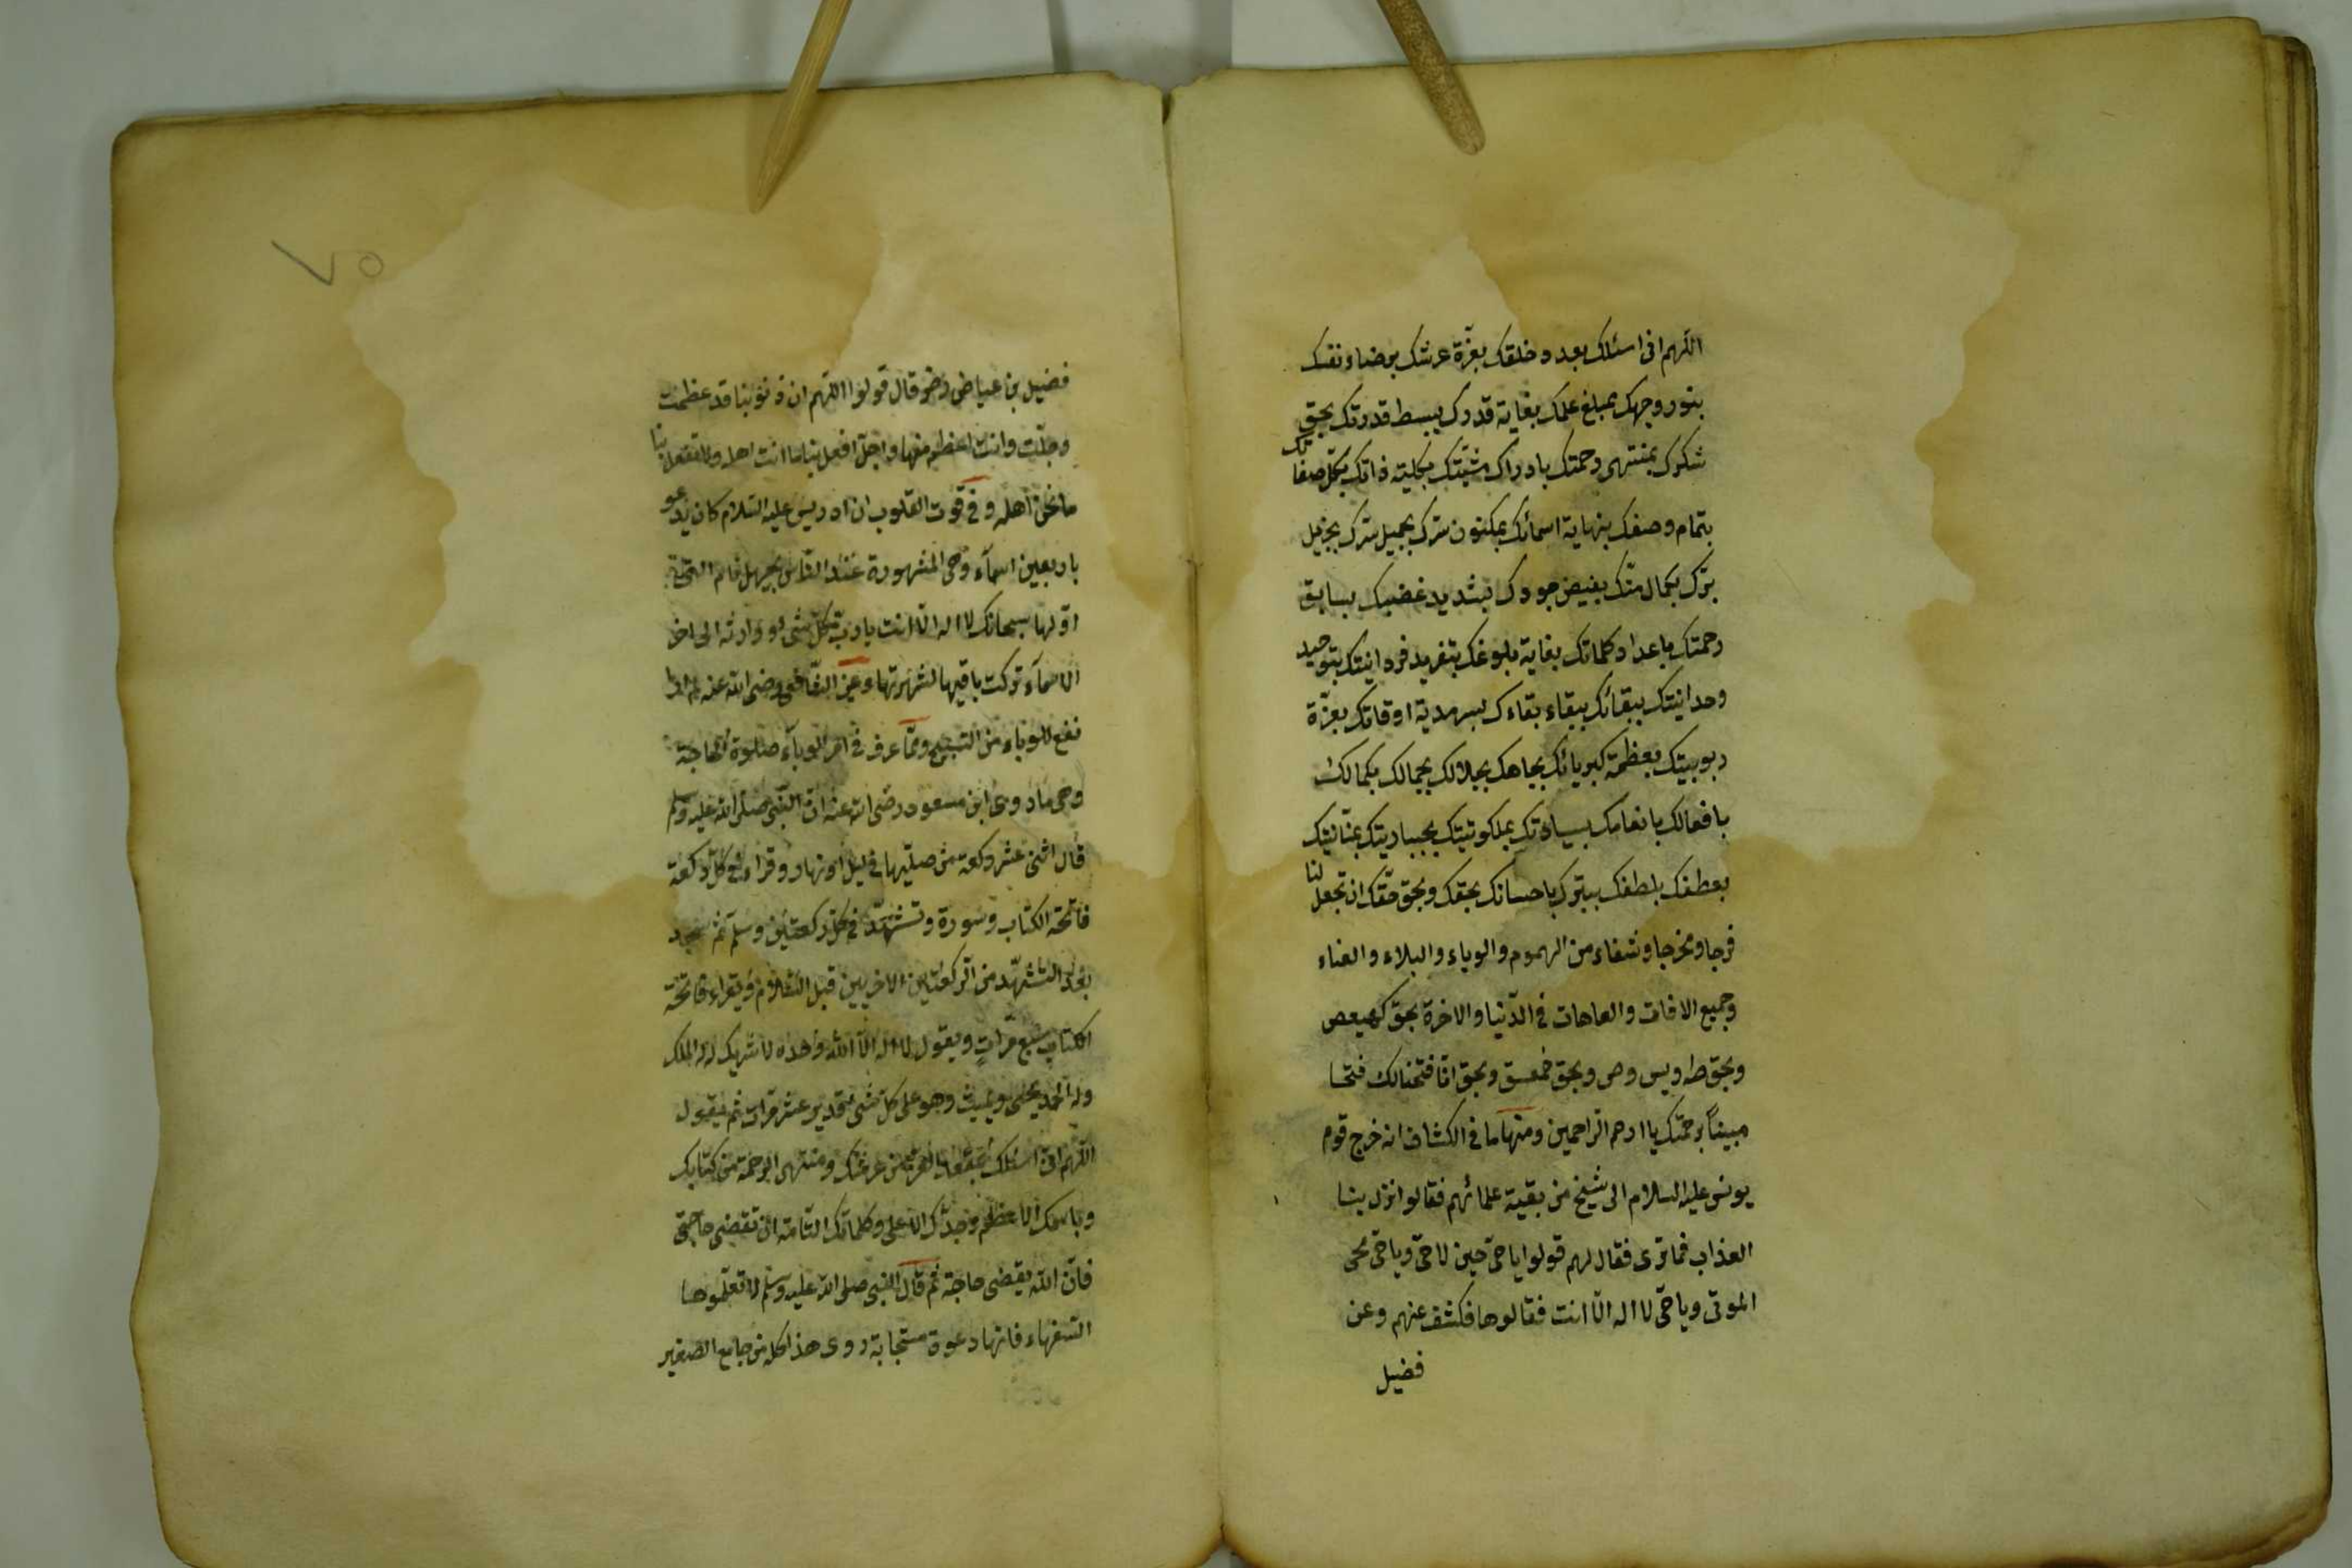 اللهم انى اسئلك بعدد خلقك بعزة عرشك برضاء نفسك
بنور وجهك بمبلغ علمك بغاية قدرك ببسط قدرتك بحق
شكرك بمنتهى رحمتك بادراك مشيّتك بكلية ذاتك بكل صفاتك
بتمام وصفك بنهاية اسمائك بمكنون سرّك بجميل سترك بجزيل
برّك بكمال منّك بفيض جودك بشديد غضبك بسابق
رحمتك باعداد كلماتك بغاية بلوغك بتفريد فردانيتك بتوحيد
وحدانيتك ببقائك ببقاء بقاءك بسرمدية اوقاتك بعزّة
ربوبيتك بعظمة كبريائك بجاهك بجلالك بجمالك بكمالك
بافعالك بانعامك بسيادتك بملكوتيتك بجباريتك بمنّانيتك
بعطفك بلطفك ببرّك باحسانك بحقك وبحق حقّك ان تجعل لنا
فرجا ومخرجا وشفاء من الهموم والوباء والبلاء والعناء
وجميع الافات والعاهات فى الدّنيا والاخرة بحق كهيعص
وبحق طه ويس وص وبحق حمعسق وبحق انّا فتحنا لك فتحا
مبيناً برحمتك يا ارحم الراحمين ومنها ما فى الكشاف انه خرج قوم
يونس عليه السلام الى شيخ من بقية علمائهم فقالوا نزل بنا
العذاب فما ترى فقال لهم قولوا يا حىّ حين لا حىّ ويا حىّ محى
الموتى ويا حىّ لا اله الّا انت فقالوها فكشف عنهم وعن
فضيل
٧٥
فضيل بن عياض رضو قال قولوا اللهم ان ذنوبنا قد عظمت
وجلّت وانت اعظم منها واجلّ افعل بنا ما انت اهله ولا تفعل بنا
ما نحن اهله وفى قوت القلوب ان ادريس عليه السّلام كان يدعو
باربعين اسمآء وهى المشهورة عند النّاس بجهل نام التحية
اوّلها سبحانك لا اله الّا انت يا ربّ كل شىء ووارثه الى اخر
الاسمآء تركت باقيها لشهرتها وعن الشّافعى رضى الله عنه لم ار
نفع للوباء من التسبيح وممّا عرف فى امر الوبآء صلوة الحاجة
وهى ما روى ابن مسعود رضى الله عنه انّ النّبى صلى الله عليه وسلم
قال اثنى عشر ركعة من صليّها فى ليل او نهار وقراء فى كل ركعة
فاتحة الكتاب وسورة وتشهّد فى كلّ ركعتين وسلم ثم سجد
بعد التشهّد من الرّكعتين الاخريين قبل السّلام ويقراء فاتحة
الكتاب سبع مرّاتٍ ويقول لا اله الّا الله وحده لا شريك له له الملك
وله الحمد يحيى ويميت وهو على كل شىء قدير عشر مرّات ثم يقول
اللهم انى اسئلك بمعاقد العزّ من عرشك ومنتهى الرحمة من كتابك
وباسمك الاعظم وجدّك الاعلى وكلماتك التّامة ان تقضى حاجتى
فانّ الله يقضى حاجة ثم قال النبى صلى الله عليه وسلم لا تعلّموها
السّفهاء فانها دعوة مستجابة روى هذا كله من جامع الصّغير